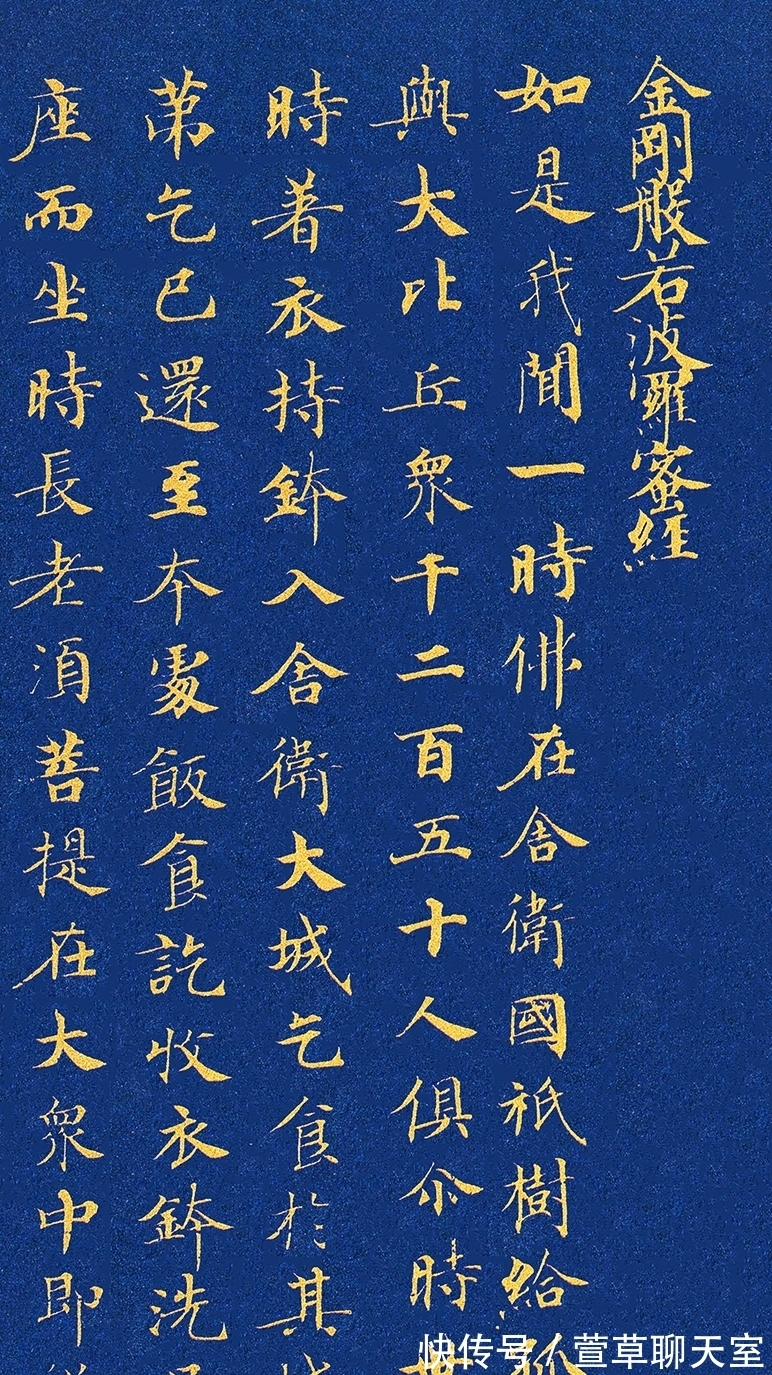 金剛般若波羅蜜經
如是我聞一時佛在舍衛國祇樹給孤
與大比丘衆千二百五十人俱尒時世
時著衣持鉢入舍衛大城乞食於其城
苐乞已還至本處飯食訖收衣鉢洗
座而坐時長老須菩提在大衆中即
快传号/萱草聊天室